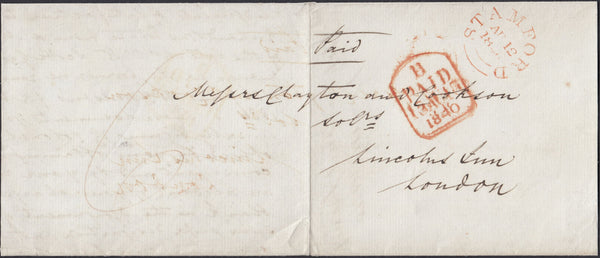 Paid
STAMFORD
B
PAID
1840
Messrs Clayton and Cookson
solrs
Lincolns Inn
London